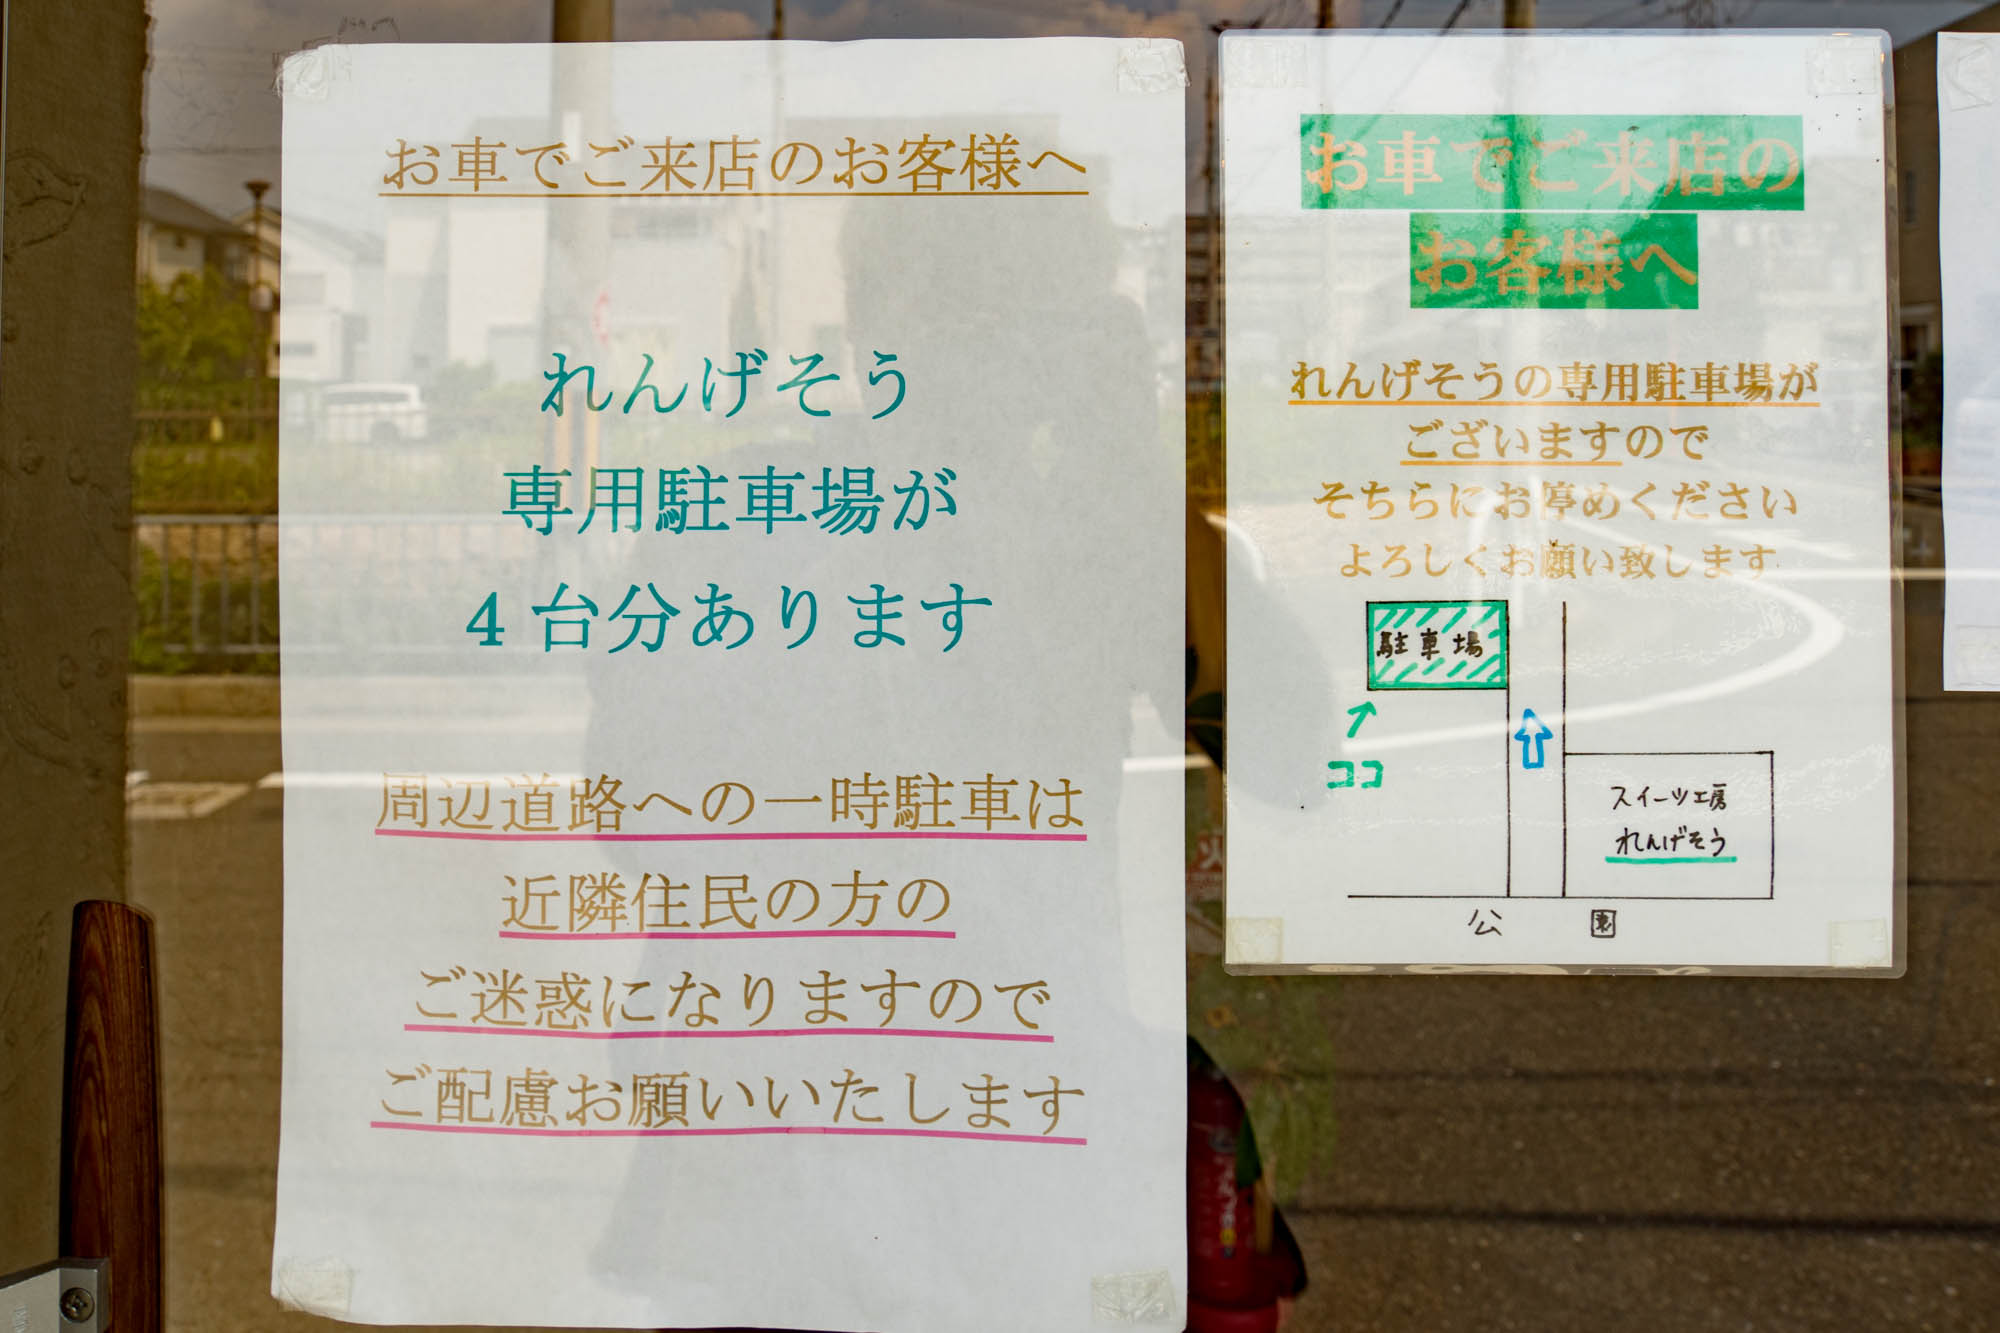 お車でご来店のお客様へ
れんげそう
専用駐車場が
4台分あります
周辺道路への一時駐車は
近隣住民の方の
ご迷惑になりますので
ご配慮お願いいたします
お車でご来店の
お客様へ
れんげそうの専用駐車場が
ございますので
そちらにお停めください
よろしくお願い致します
駐車場
ココ
スイーツ工房
れんげそう
公園